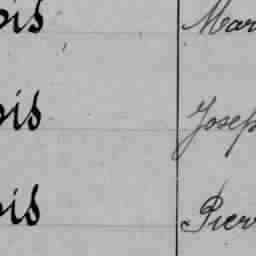 ois Mar
ois Josep
ois Pierr